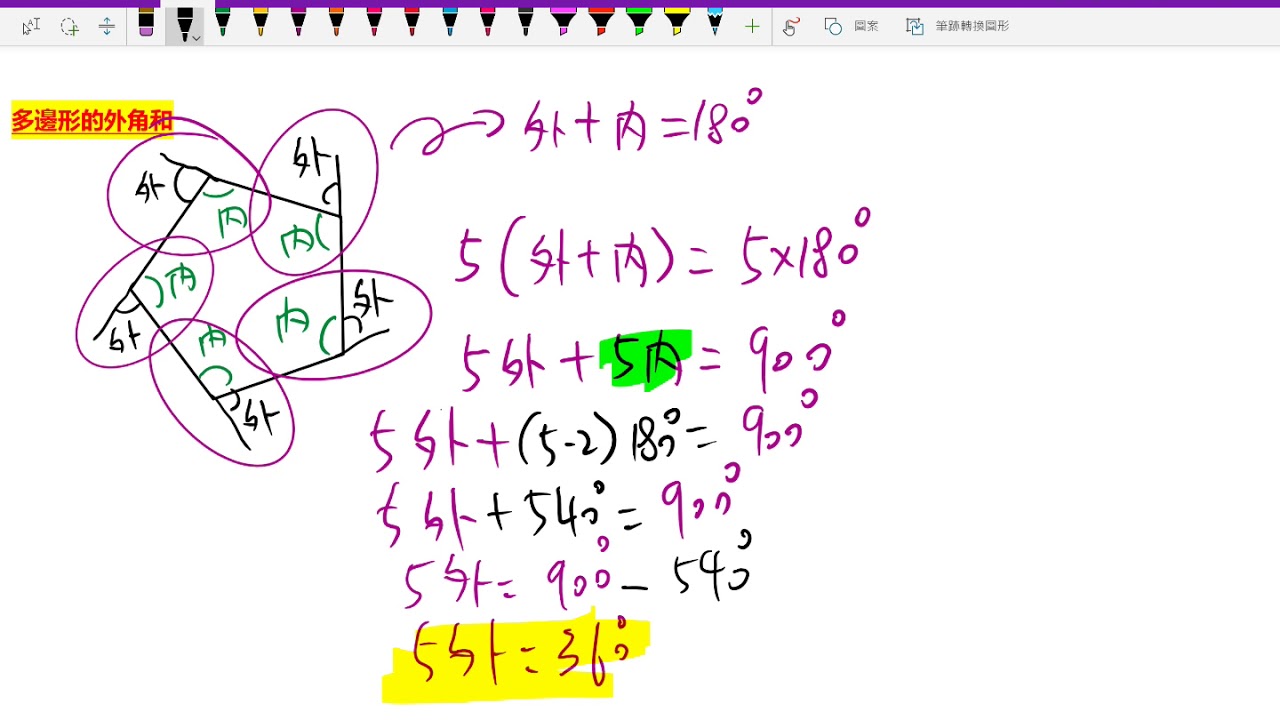 圖案 筆跡轉換圖形
多邊形的外角和
外+內=180°
外 內
外 內
內 外
內 外
內 外
5(外+內)=5×180°
5外+5內=900°
5外+(5-2)180°=900°
5外+540°=900°
5外=900°-540°
5外=360°